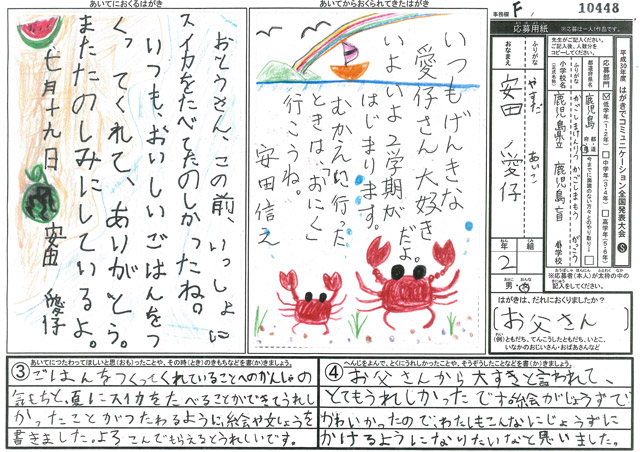 あいてにおくるはがき
おとうさん、この前、いっしょに
スイカをたべてたのしかったね。
いつも、おいしいごはんをつ
くってくれて、ありがとう。
またたのしみにしているよ。
七月十九日
安田 愛仔
あいてからおくられてきたはがき
いつもげんきな
愛仔さん大好き
だよ。
いよいよ2学期が
はじまります。
むかえに行った
ときは「おにく」
行こうね。
安田信え
事務欄
F
10448
応募用紙
※応募は一人1作品です。
平成30年度 はがきでコミュニケーション全国発表大会 S
先生がご記入ください。
ご記入後、人数分を
コピーしてください。
応募部門
低学年(1・2年)
中学年(3・4年)
高学年(5・6年)
都道府県名
鹿児島
都・道
府・県
ふりがな
かごしまけんりつ かごしまもう がっこう
小学校名
鹿児島県立 鹿児島盲 小学校
ふりがな
やすだ あいこ
おなまえ
安田 愛仔
年
2
組
男・女
※応募者(本人)が太枠の中の
記入をしてください。
はがきは、だれにおくりましたか?
お父さん
(例)ともだち、てんこうしたともだち、いとこ、
いなかのおじいさん・おばあさんなど
あいてにつたわってほしいと思(おも)ったことや、その時(とき)のきもちなどを書(か)きましょう。
③ごはんをつくってくれていることへのかんしゃの
気もちと、夏にスイカをたべることができてうれし
かったことがつたわるように、絵や文しょうを
書きました。よろこんでもらえるとうれしいです。
へんじをよんで、とくにうれしかったことや、そうぞうしたことなどを書(か)きましょう。
④お父さんから大すきと言われて、
とてもうれしかったです。絵がじょうずで
かわいかったので、わたしもこんなにじょうずに
かけるようになりたいなと思いました。